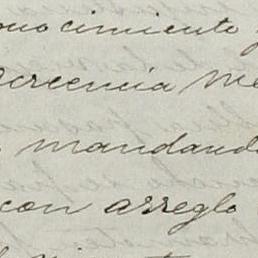 onocimiento y
creencia me
mandando
con arreglo